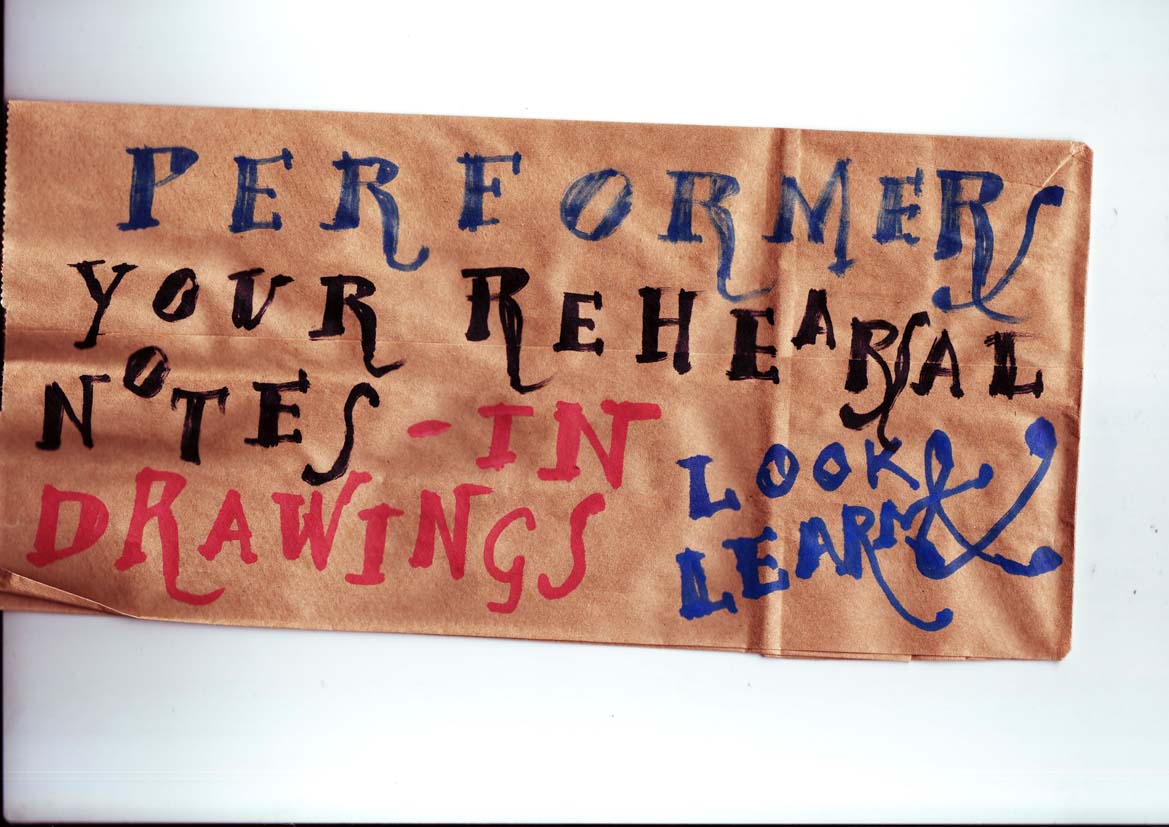 PERFORMERS
YOUR REHEARSAL
NOTES - IN
DRAWINGS
LOOK &
LEARN